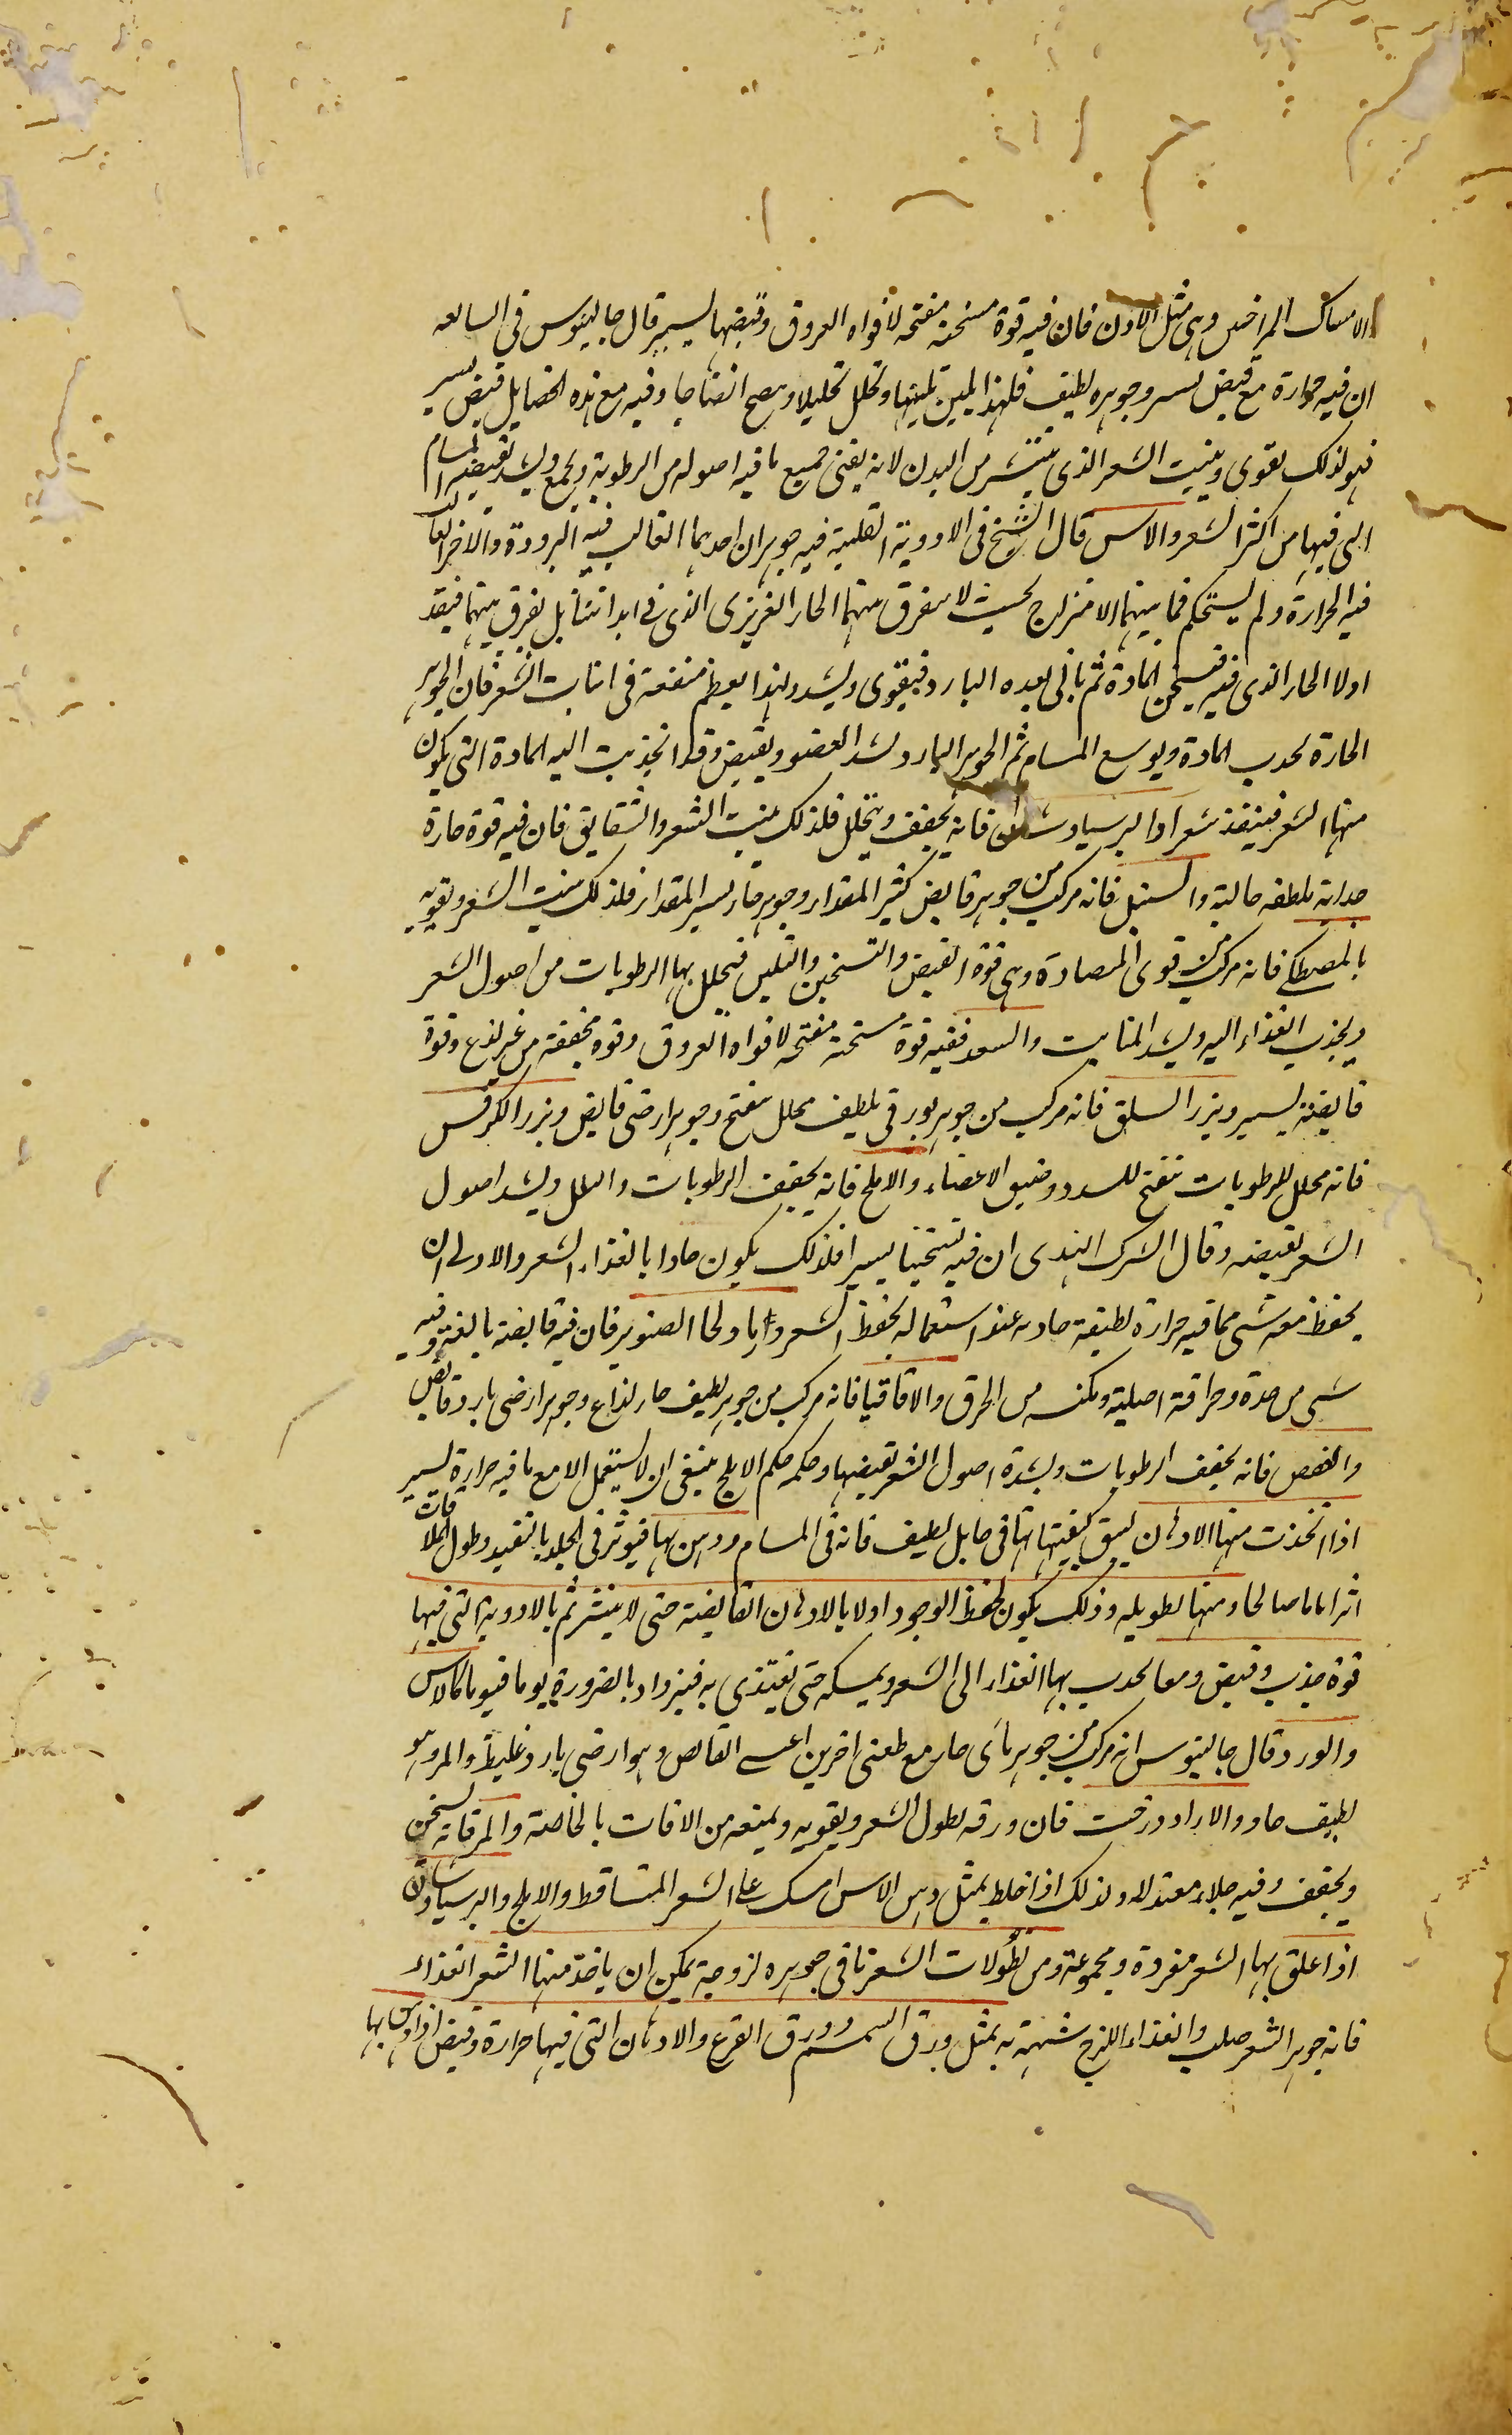 الامساك المراخص وهى مثل اللادن فان فيه قوة مسخنة مفتحه لافواه العروق وقبضها يسير قال جالينوس فى السابعه
ان فيه حرارة مع قبض يسير وجوهره لطيف فلهذا يلين تليينها وتحلل تحليلا وينضج انضاجا وفيه مع هذه الخصايل قبض يسير
فهو لذلك يقوى وينبت الشعر الذى ينتشر من البدن لانه يفنى جميع ما فيه اصوله من الرطوبة ويجمع ويشد بقبضه المسام
التى فيها من اكثر الشعر والاس قال الشيخ فى الادوية القلبية فيه جوهران احدهما الغالب فيه البرودة والاخر الغالب
فيه الحرارة ولم يستحكم فيما بينهما الامتزاج بحيث لا يفرق بينهما الحار الغريزى الذى فى ابداننا بل يفرق بينهما فينفد
اولا الحار الذى فيه فيسخن المادة ثم ياتى بعده البارد فيقوى ويشد ولهذا يعظم منفعة فى انبات الشعر فان الجوهر
الحارة يجذب المادة ويوسع المسام ثم الجوهر البارد يشد العضو ويقبض وقد انجذبت اليه المادة التى يكون
منها الشعر فينعقد شعرا والبرسياوشان فانه يجفف ويحلل فلذلك ينبت الشعر والشقايق فان فيه قوة حارة
جذابة ملطفه جالية والسنبل فانه مركب من جوهر قابض كثير المقدار وجوهر حار يسير المقدار فلذلك ينبت الشعر ويقويه
بالمصطكى فانه مركب من قوى المتضادة وهى قوة القبض والتسخين والتليين فيحلل بها الرطوبات من اصول الشعر
ويجذب الغذاء اليه ويشد المنابت والسعد ففيه قوة مسخنة مفتحه لافواه العروق وقوة مجففة من غير لذع وقوة
قابضة يسير وبزر السلق فانه مركب من جوهر بورقى لطيف محلل مفتح وجوهر ارضى قابض وبزر الكرفس
فانه محلل للرطوبات تفتح للسدد وضيق الاعضاء والاملج فانه يجفف الرطوبات والبلل ويشد اصول
الشعر بقبضه وقال الشرك الهندى ان فيه تسخينا يسيرا فلذلك يكون جاذبا لغذاء الشعر والاولى ان
يخفظ معه شى مما فيه حرارة لطيفة جاذبه عند استعماله بحفظ الشعر وانباته ولحا الصنوبر فان فيه قابضة بالغة وفيه
شى من حدة وحرافة اصلية ومكنسه من الحرق والاقاقيا فانه مركب من جوهر لطيف حار لذاع وجوهر ارضى بارد قابض
والعفص فانه يجفف الرطوبات ويشد اصول الشعر بقبضها وحكمه حكم الاملج ينبغى ان لا يستعمل الا مع ما فيه حرارة يسير
اذا اتخذت منها الادهان ليبق كيفيتها فى حامل لطيف فانه فى المسام ودهن بها فيوثر فى الجلد بالتقيد وطول الملاقات
اثرا تاما صالحا ومنها لطويله وذلك يكون بحفظ الوجود اولا بالادهان القابضة حتى لا ينتشر ثم بالادوية التى فيها
قوة جذب وقبض ومعا لجذب بها الغذاء الى الشعر ويمسكه حتى يغتذى به فيزداد بالضرورة يوما فيوما كالاس
والورد قال جالينوس انه مركب من جوهر مائى حار مع طعمين اخرين اعنى القابض وهو ارضى بارد غليظ والمر وهو
لطيف حار والازاد درخت فان ورقه يطول الشعر ويقويه ويمنعه من الافات بالخاصة والمر فانه يسخن
ويجفف وفيه جلاء معتدلا ولذلك اذا خلط بمثل دهن الاس امسك على الشعر المتساقط والاملج والبرسياوشان
اذا علق بها الشعر مفردة ومجموعة ومن لطولات الشعر ما فى جوهره لزوجة يمكن ان ياخذ منها الشعر الغذاء
فانه جوهر الشعر صلب والغذاء اللزج شبيه به بمثل ورق السمسم وورق القرع والادهان التى فيها حرارة وقبض اذا دهن بها